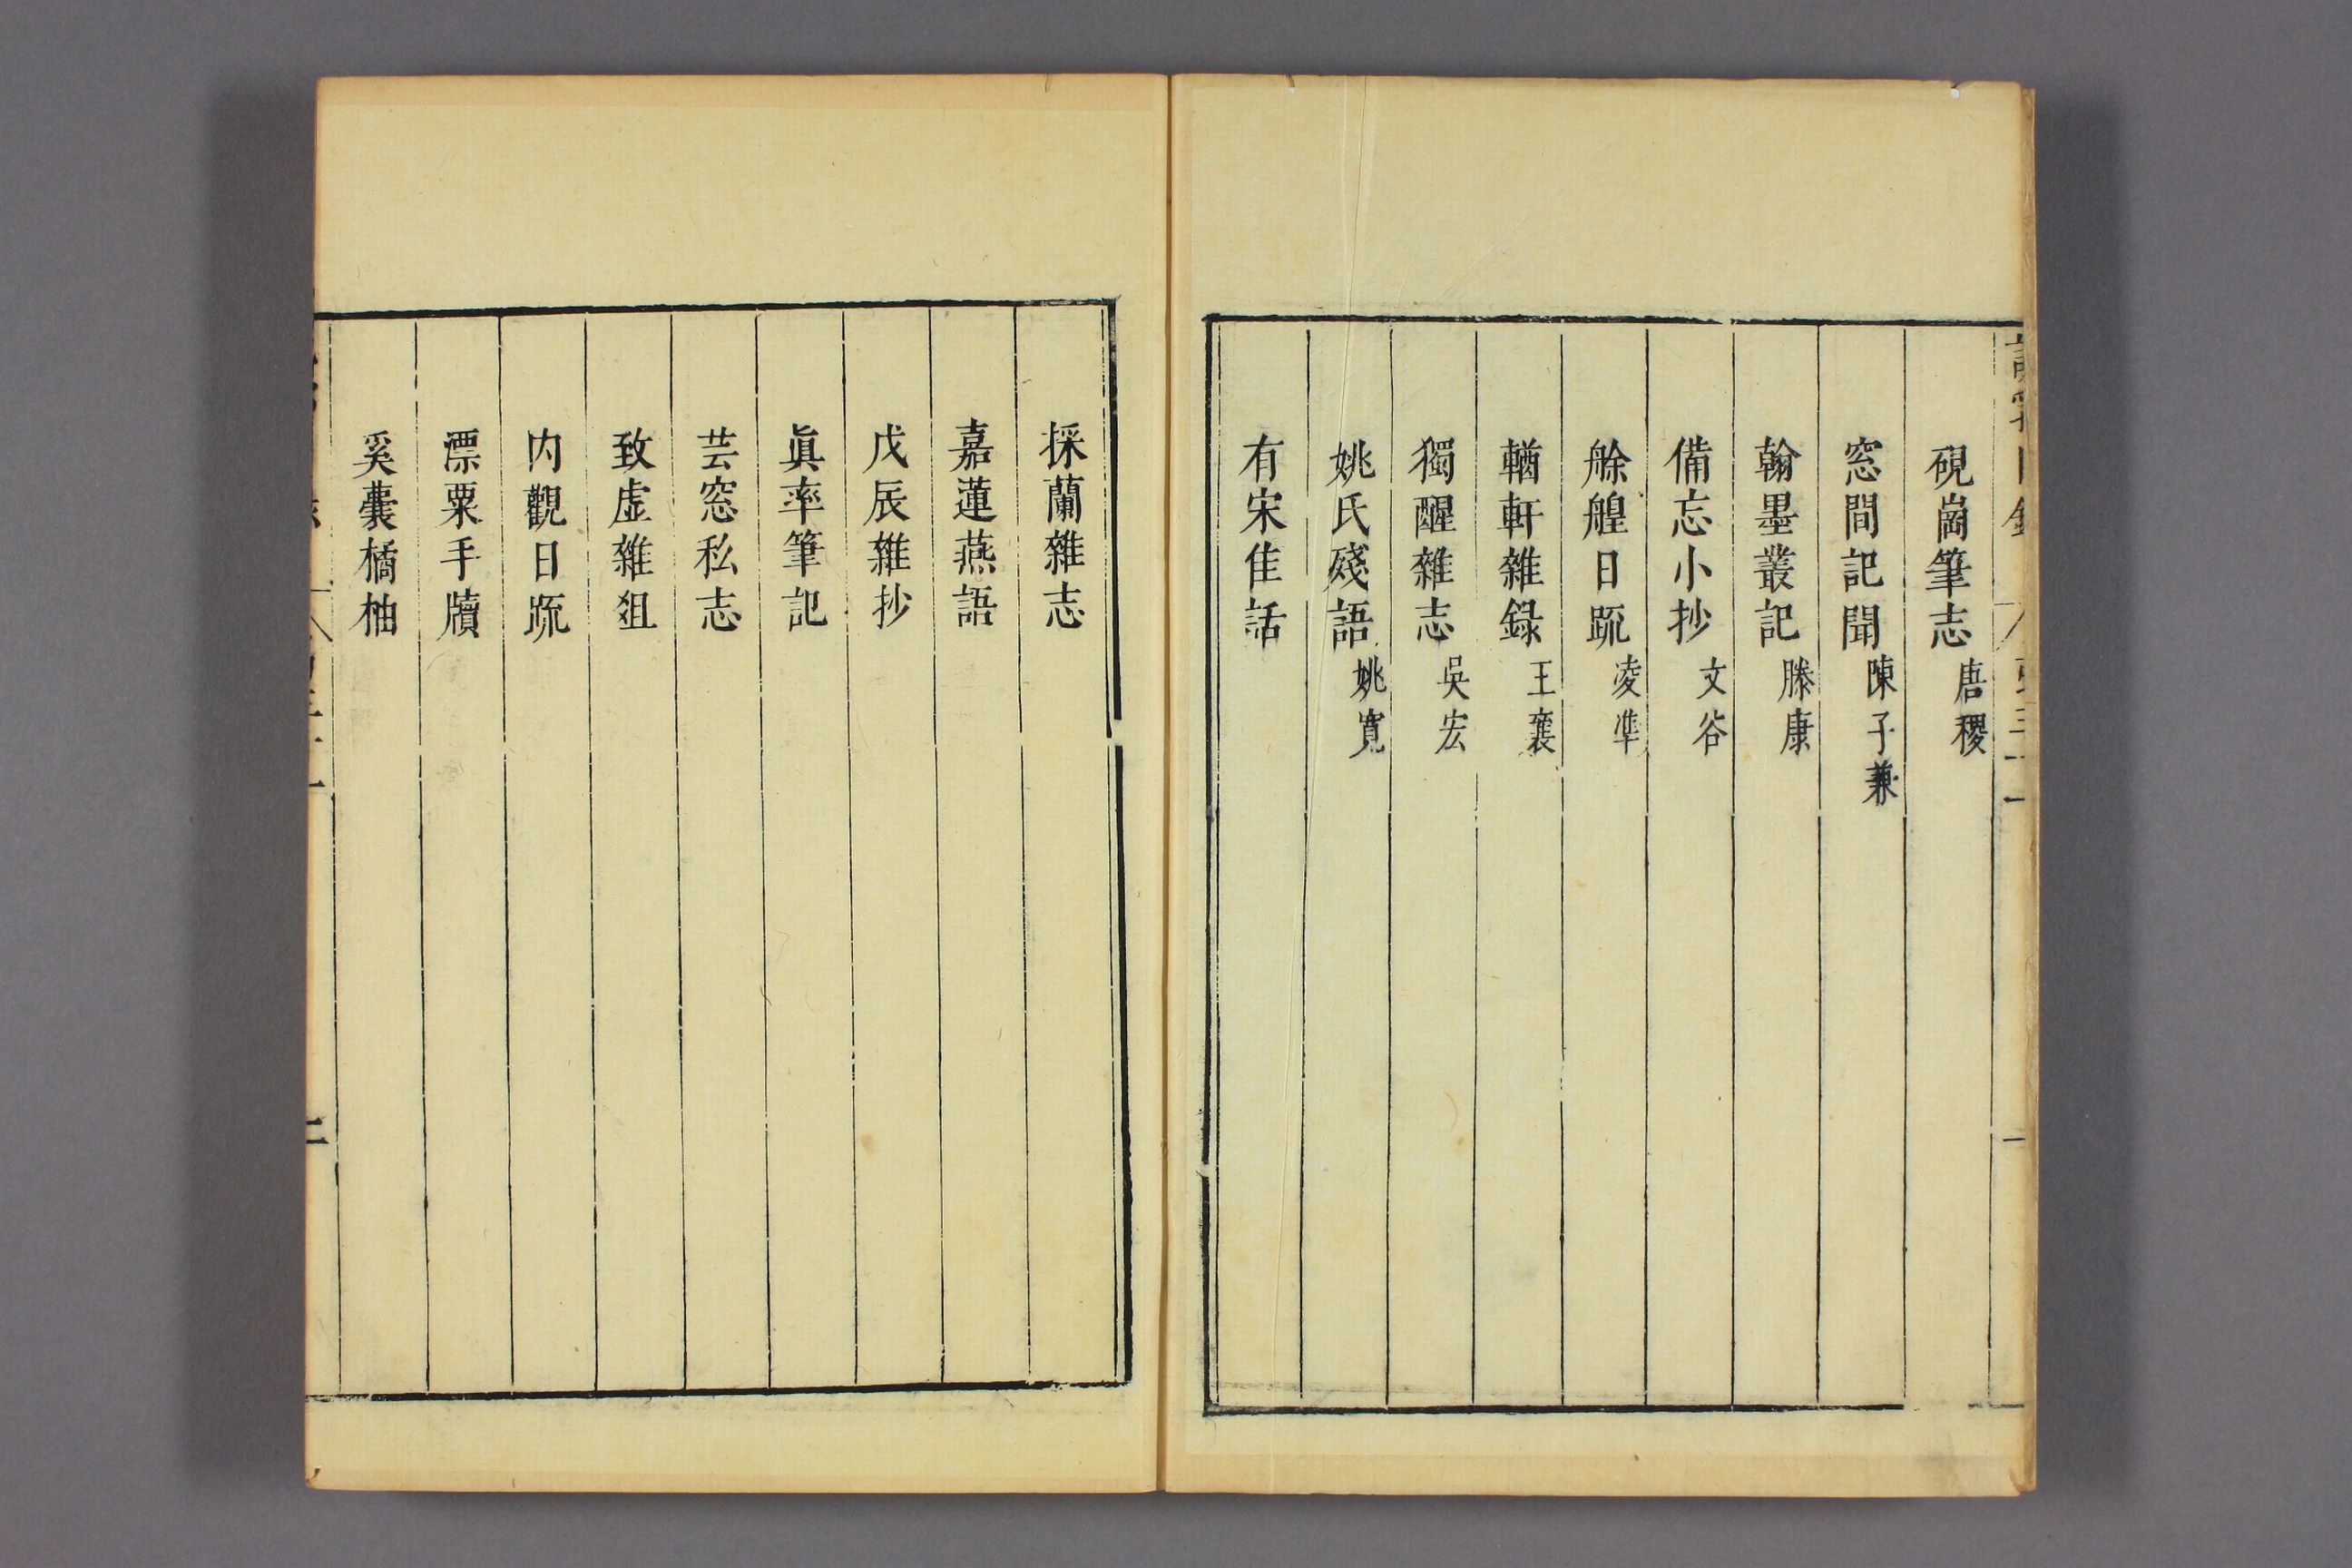 硯崗筆志 唐稷
窓間記聞 陳子兼
翰墨叢記 滕康
備忘小抄 文谷
艅艎日疏 凌準
輶軒雜録 王襄
獨醒雜志 吳宏
姚氏殘語 姚寬
有宋佳話
採蘭雜志
嘉蓮燕語
戊辰雜抄
眞率筆記
芸窓私志
致虛雜俎
内觀日疏
漂粟手牘
奚囊橘柚